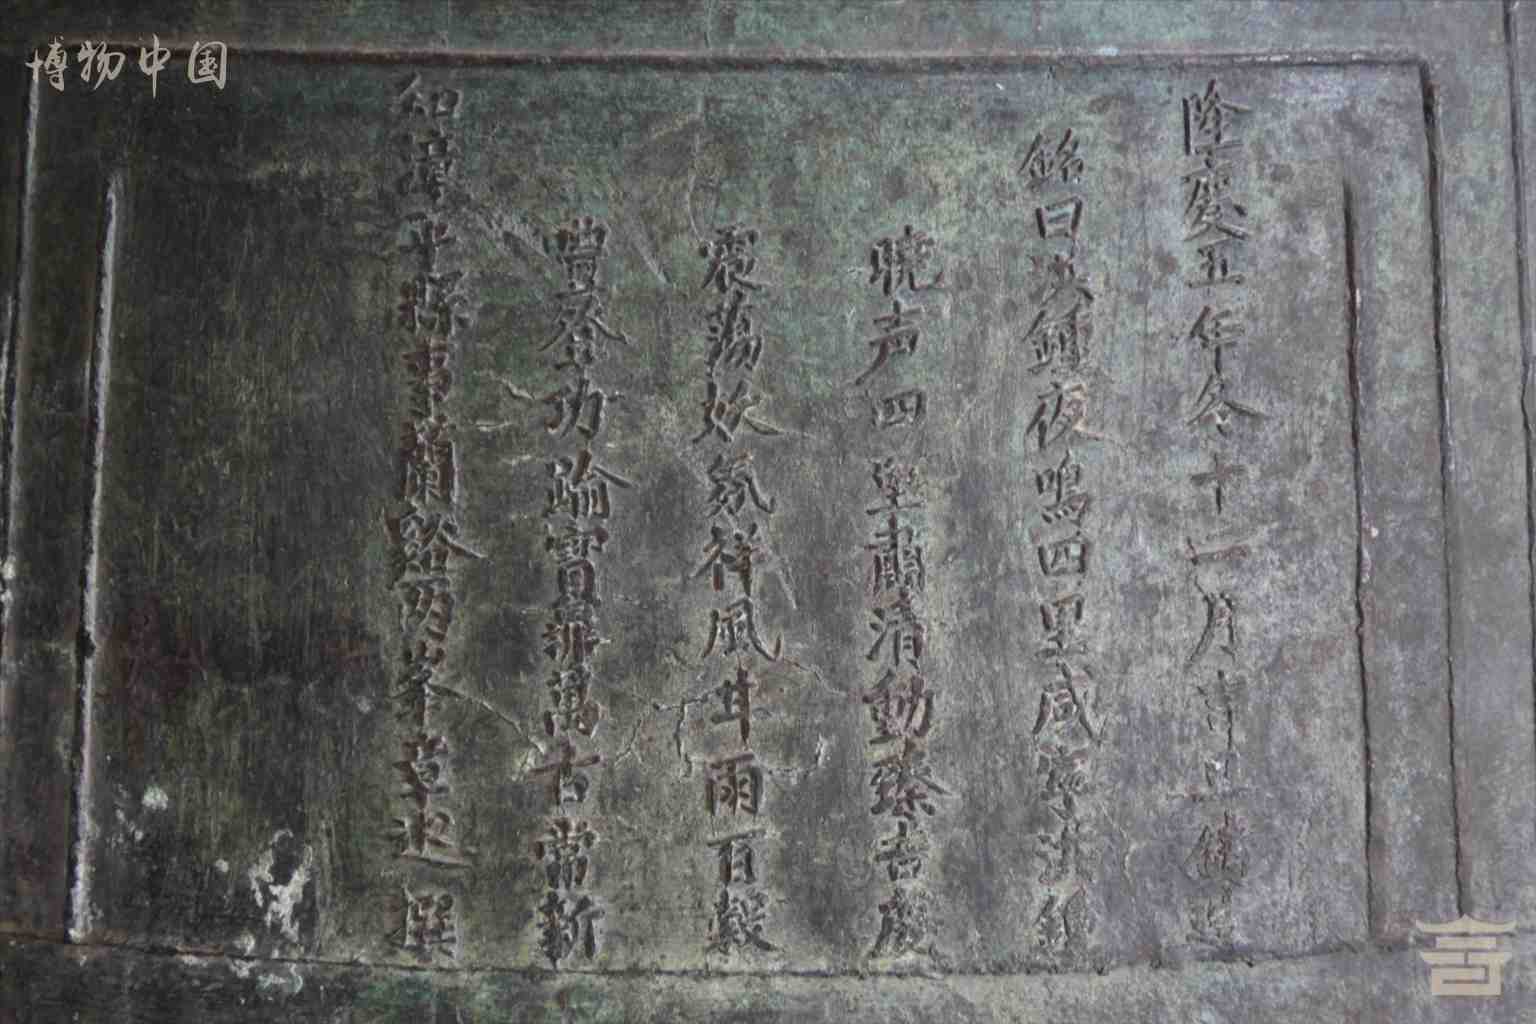 博物中国
隆慶五年冬十一月吉日造
銘曰洪鍾夜鳴四里咸寧洪鍾
曉声四埜肅清動臻吉慶
震蕩妖氛祥風甘雨百穀
豐登功踰萬古常新
知漳平縣事蘭谿两峯章述撰